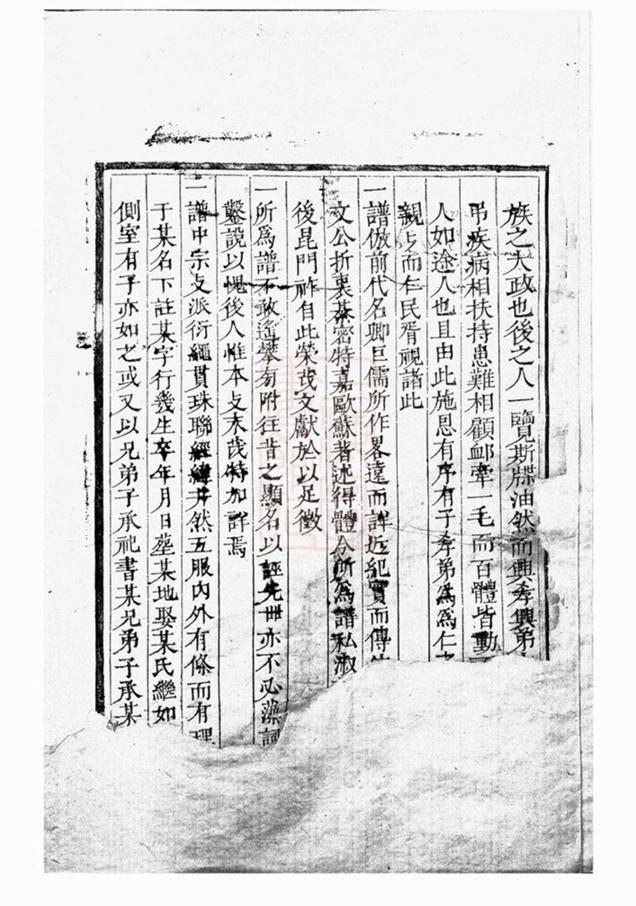 族之大政也後之人一覽斯牒油然而興孝興弟
弔疾病相扶持患難相顧卹牽一毛而百體皆動
人如途人也且由此施恩有序有子孝弟為為仁之
親上而仁民胥視諸此
一譜倣前代名卿巨儒所作畧遠而詳近紀實而傳
文公折衷綦密特嘉歐蘇著述得體今所為譜私淑
後昆門祚自此榮哉文獻於以足徵
一所為譜不敢遙攀旁附往昔之顯名以誣先世亦不必藻詞
鑿說以愧後人惟本支末裔特加詳焉
一譜中宗支派衍繩貫珠聯經緯井然五服內外有條而有理
于某名下註某字行幾生卒年月日塟某地娶某氏繼如
側室有子亦如之或又以兄弟子承祀書某兄弟子承某